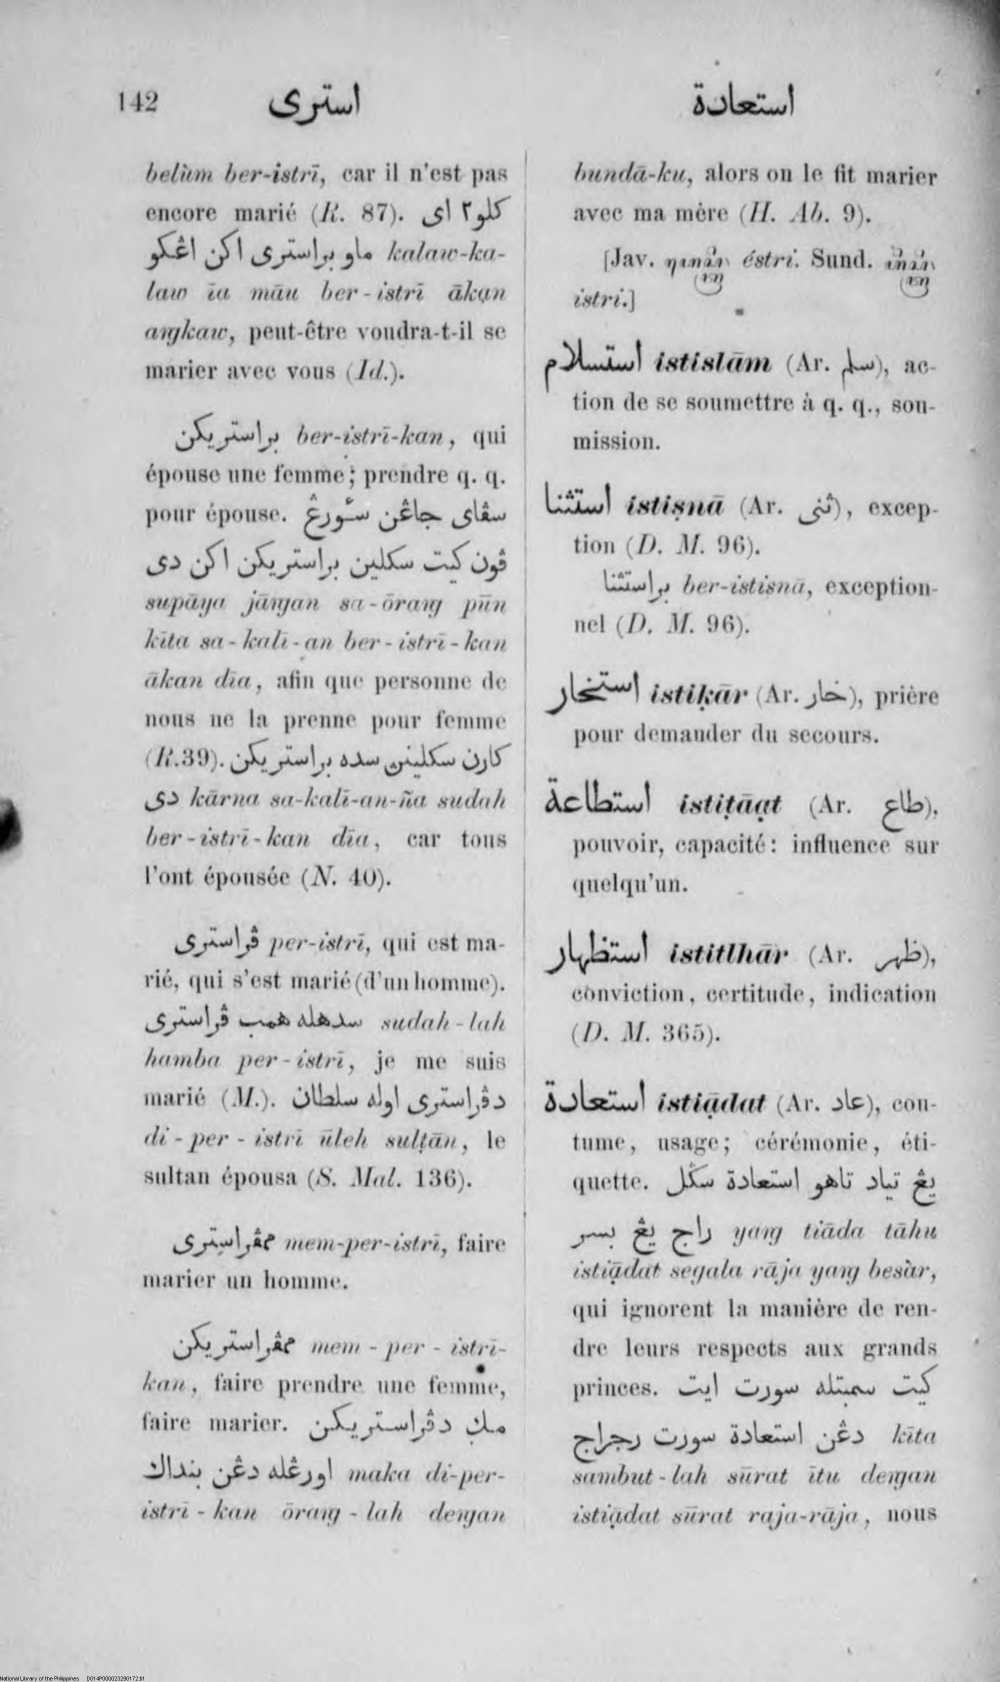 142
استري
استعادة
belùm ber-istrī, car il n'est pas
encore marié (R. 87). کلو٢ اي
ماو براستري اکن اڠکو kalaw-ka-
law īa māu ber-istrī ākan
aṅkaw, peut-être voudra-t-il se
marier avec vous (Id.).
براستريکن ber-istrī-kan, qui
épouse une femme; prendre q. q.
pour épouse. سڤاي جاڠن سـٔورڠ
ڤون کيت سکلين براستريکن اکن دي
supāya jāṅan sa-ōraṅ pūn
kīta sa-kalī-an ber-istrī-kan
ākan dīa, afin que personne de
nous ne la prenne pour femme
(R. 39). کارن سکلين سده براستريکن
دي kārna sa-kalī-an-ña sudah
ber-istrī-kan dīa, car tous
l'ont épousée (N. 40).
ڤراستري per-istrī, qui est ma-
rié, qui s'est marié (d'un homme).
سدهله همب ڤراستري sudah-lah
hamba per-istrī, je me suis
marié (M.). دڤراستري اوله سلطان
di-per-istrī ūleh sulṭān, le
sultan épousa (S. Mal. 136).
ممڤراستري mem-per-istrī, faire
marier un homme.
ممڤراستريکن mem-per-istrī-
kan, faire prendre une femme,
faire marier. مک دڤراستريکن
اورڠله دڠن بنداک maka di-per-
istrī-kan ōraṅ-lah deṅan
bundā-ku, alors on le fit marier
avec ma mère (H. Ab. 9).
[Jav. éstri. Sund.
istri.]
استسلام istislām (Ar. سلم), ac-
tion de se soumettre à q. q., sou-
mission.
استثنا istiṣnā (Ar. ثنى), excep-
tion (D. M. 96).
براستثنا ber-istisnā, exception-
nel (D. M. 96).
استخار istiḳār (Ar. خار), prière
pour demander du secours.
استطاعة istiṭāạt (Ar. طاع),
pouvoir, capacité: influence sur
quelqu'un.
استظهار istitlhār (Ar. ظهر),
conviction, certitude, indication
(D. M. 365).
استعادة istiạ̄dat (Ar. عاد), cou-
tume, usage; cérémonie, éti-
quette. يڠ تياد تاهو استعادة سڬل
راج يڠ بسر yaṅ tiāda tāhu
istiạ̄dat segala rāja yaṅ besàr,
qui ignorent la manière de ren-
dre leurs respects aux grands
princes. کيت سمبتله سورت ايت
دڠن استعادة سورت رجراج kīta
sambut-lah sūrat ītu deṅan
istiạ̄dat sūrat raja-rāja, nous
National Library of the Philippines